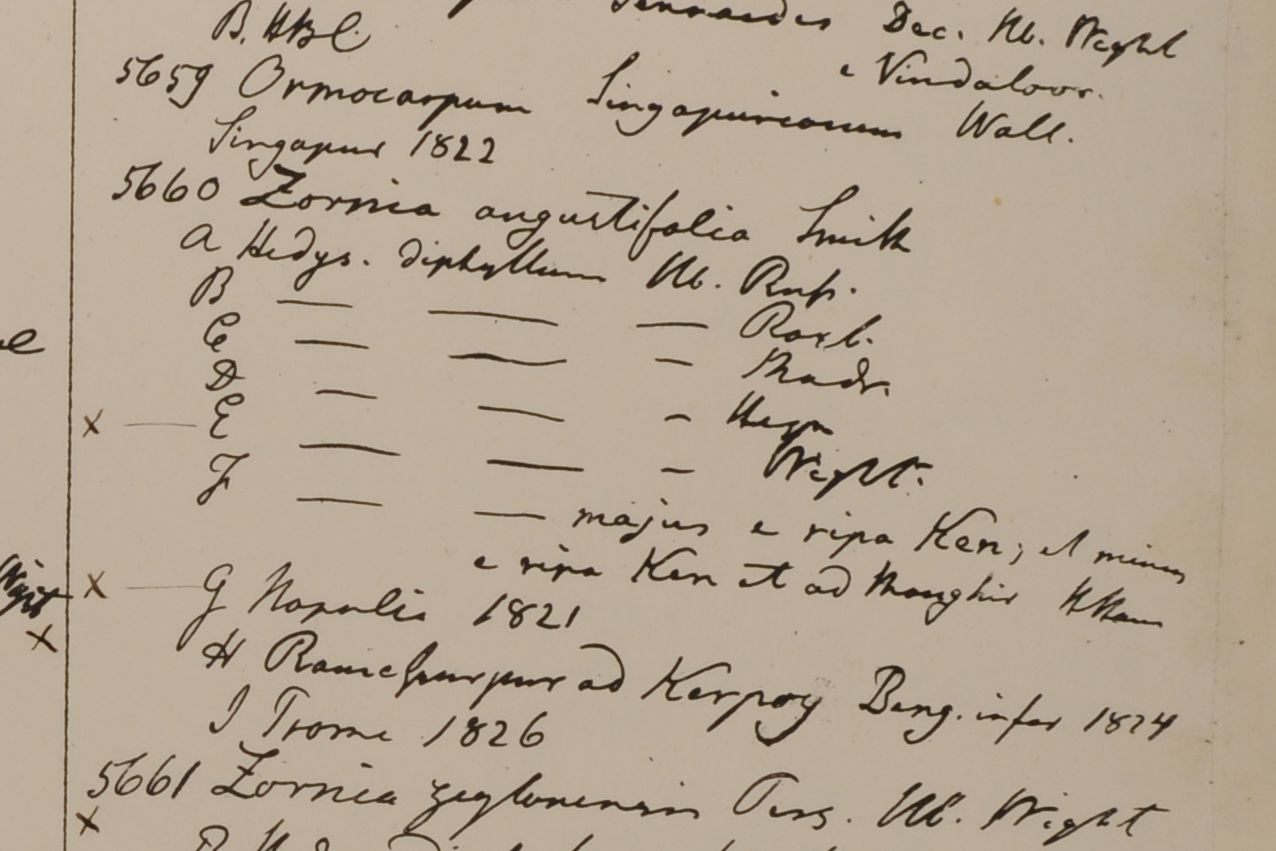 Dec. Hb. Wight
B. HBC.
e Vindaloor.
5659 Ormocarpum Singapureanum Wall.
Singapur 1822
5660 Zornia angustifolia Smith
A Hedys. diphyllum Hb. Russ.
B — — — Roxb.
C — — — Madr.
D — — — Heyn
x — E — — — Wight.
F — — majus e ripa Ken; et minus
e ripa Ken et ad Monghir HHam
x — G Napalia 1821
H ad Kerpoy Beng. infer 1824
I Prome 1826
5661 Zornia zeylonensis Pers. Hb. Wight
x
Wight
x